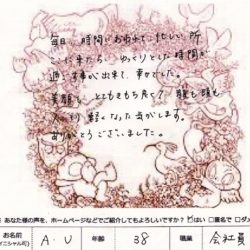 毎日、時間におわれて、忙しい所
ここに来たら、ゆっくりとした時間が
過ごす事が出来て、幸せでした。
笑顔も とてもきもち良くて 顔も頭も
スッキリ 軽くなった 気がします。
ありがとうございました。
あなた様の声を、ホームページなどでご紹介してもよろしいですか？ はい □匿名で □ダメ
お名前 A・U 年齢 38 職業 会社員
イニシャル可)